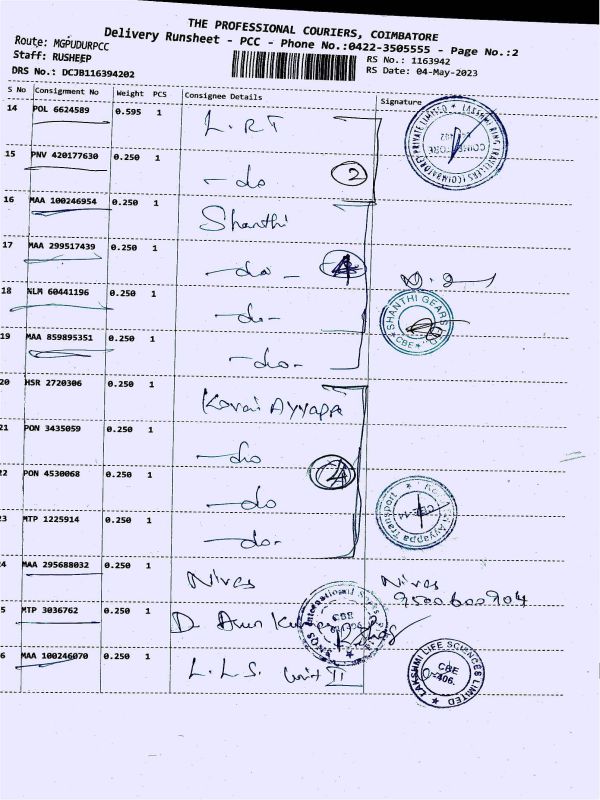 THE PROFESSIONAL COURIERS, COIMBATORE
Delivery Runsheet - PCC - Phone No.:0422-3505555 - Page No.:2
Route: MGPUDURPCC
Staff: RUSHEEP
DRS No.: DCJB116394202
RS No.: 1163942
RS Date: 04-May-2023
S No Consignment No Weight PCS Consignee Details Signature
14 POL 6624589 0.595 1 L.R.T
LAKSHMI RING TRAVELLERS (COIMBATORE) PRIVATE LIMITED
15 PNV 420177630 0.250 1 -do 2
16 MAA 100246954 0.250 1 Shanthi
17 MAA 299517439 0.250 1 -do- 4
18 NLM 60441196 0.250 1 -do-
SHANTHI GEARS LTD CBE
19 MAA 859895351 0.250 1 -do-
20 HSR 2720306 0.250 1 Kovai Ayyappa
21 PON 3435059 0.250 1 -do
22 PON 4530068 0.250 1 -do 4
Ayyappa Transport
23 MTP 1225914 0.250 1 -do-
24 MAA 295688032 0.250 1 Nives Nives
9500600904
25 MTP 3036762 0.250 1 D Arun Kumar
International
26 MAA 100246070 0.250 1 L.L.S. Unit II
LAKSHMI LIFE SCIENCES LIMITED CBE -406.